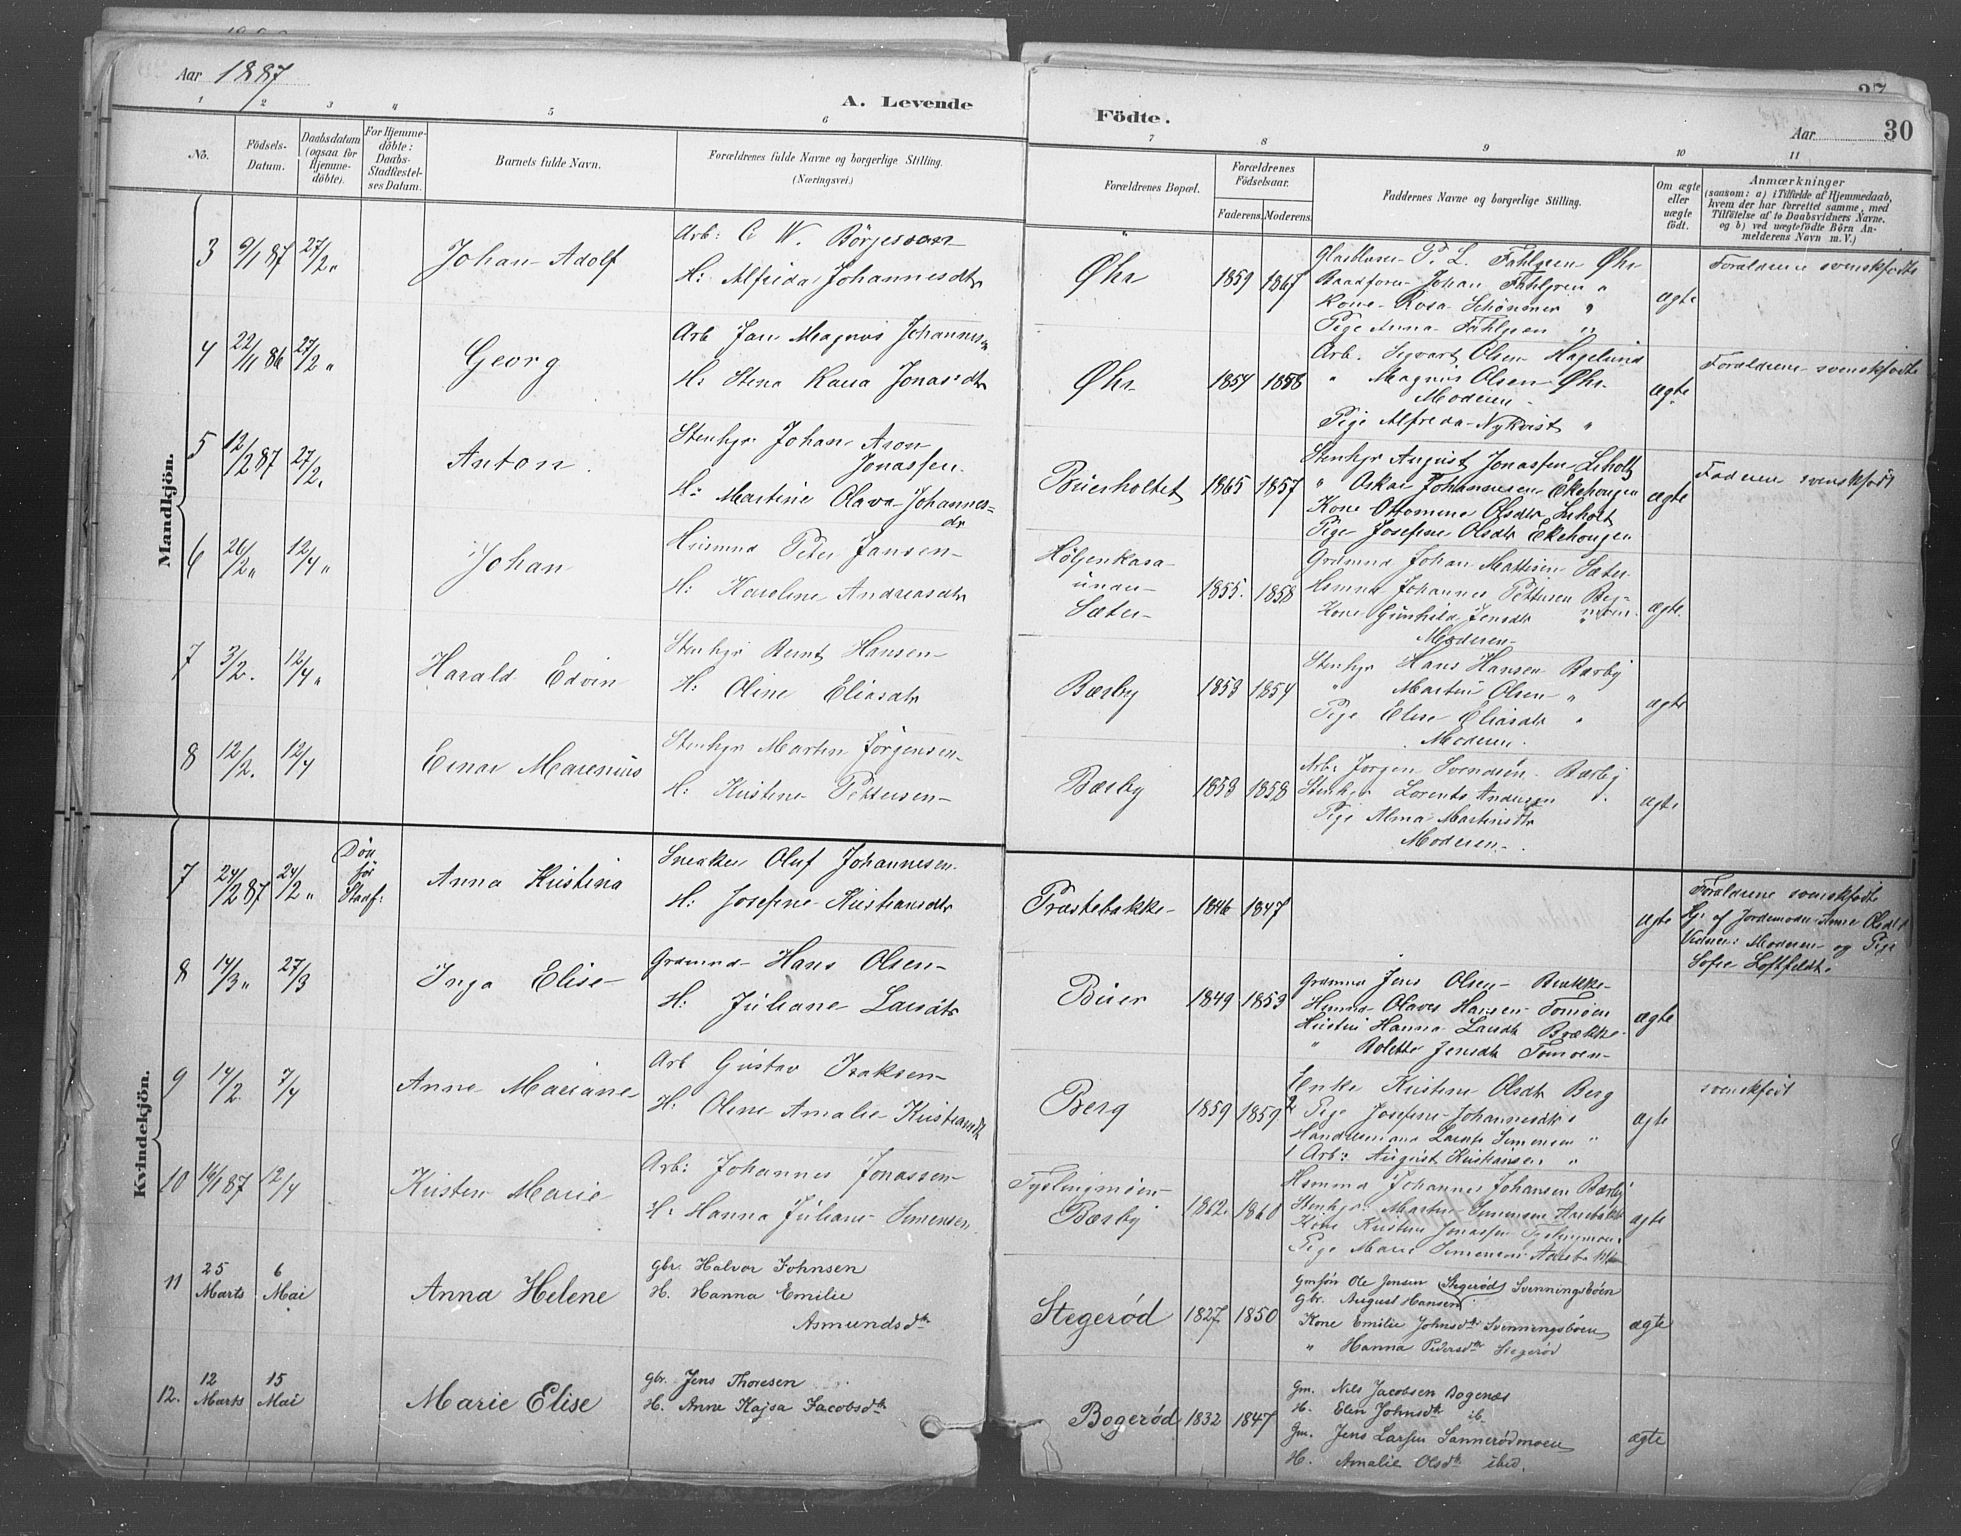 Aar 1887
A. Levende
Födte.
Aar
30
1 2 3 4 5 6 7 8 9 10 11
No.
Födsels-Datum.
Daabsdatum (ogsaa for Hjemmedöbte).
For Hjemmedöbte: Daabs-Stadfæstelses Datum.
Barnets fulde Navn.
Forældrenes fulde Navne og borgerlige Stilling.
(Næringsvei.)
Forældrenes Bopæl.
Forældrenes Födselsaar.
Faderens. Moderens.
Faddernes Navne og borgerlige Stilling.
Om ægte eller uægte födt.
Anmærkninger
(saasom: a) i Tilfælde af Hjemmedaab, hvem der har forrettet samme, med Tilföielse af to Daabsvidners Navne, og b) ved uægtefödte Börn Anmelderens Navn m. V.)
Mandkjön.
3 9/1 87 27/2 "
Johan Adolf
Arb: C. W. Börjesson
H: Alfrida Johannesdtr
Øhr 1859 1867
P. L. Fahlgren Øhr
Johan Fahlgren "
Kone Rosa Schönmer "
Pige Anna Fahlgren "
ægte
Forældrene svenskfödte
4 22/11 86 27/2 "
Georg
Arb Jan Magnus Johannesen
H: Stena Kaisa Jonasdtr
Øhr 1854 1858
Arb. Sigvart Olsen Hagelund
" Magnus Olsen Øhr
Moderen
Pige Alfreda Nykvist "
ægte
Forældrene svenskfödte
5 12/2 87 27/2 "
Anton
Stenhgr Johan Aron
Jonassen
H: Martine Olava Johannesdtr
Buerholtet 1865 1857
Stenhgr August Jonassen Leholt
" Oskar Johannesen Ekehougen
Kone Ottomine Olsdtr Leholt
Pige Josefine Olsdtr Ekehougen
ægte
Faderen svenskfödt
6 26/2 " 12/4 "
Johan
Husmnd Peter Jansen
H: Karoline Andreasdtr
Høljenkasa
under
Sæter 1855. 1858
Grdmnd Johan Mattisen Sæter
Hsmnd Johannes Pettersen
Kone Gunhild Jensdtr "
Moderen
ægte
7 3/2. 12/4 "
Harald Edvin
Stenhgr Bernt Hansen
H: Oline Eliasdtr
Bærby 1853 1854
Stenhgr Hans Hansen Bærby
" Martin Olsen "
Pige Elise Eliasdtr "
Moderen.
ægte
8 12/2. 12/4
Einar Marenius
Stenhgr Martin Jørgensen
H: Kristine Pettersen
Bærby 1853 1858
Arb: Jørgen Svendsen Bærby
Stenhgr Lorents Andersen
Pige Alma Martinsdtr
Moderen
ægte
Kvindekjön.
7 24/2 87 24/2 "
Död för Stadf:
Anna Kristina
Snekker Oluf Johannesen
H: Josefine Kristiansdtr
Præstebakke 1846 1847
ægte
Forældrene svenskfödte
Hj: af Jordemoder Anne Olsdtr
Vidner: Moderen og Pige
Sofie Loftfeldt.
8 14/3 " 27/3
Inga Elise
Grdmnd Hans Olsen
H: Juliane Larsdtr
Buer 1849 1853
Grdmnd Jens Olsen Brække
Hsmnd Olaves Hansen Tomøen
Hustru Hanna Larsdtr Brække
" Bolette Jensdtr Tomoen
ægte
9 14/2 7/4
Anne Mariane
Arb Gustav Isaksen
H: Oline Amalie Kristiansdtr
Berg 1859 1859
Enke Kristine Olsdtr Berg
Pige Josefine Johannesdtr "
Handelsmand Simensen "
Arb: August Kristiansen "
ægte
svenskfödt
10 16/1 87 12/4
Kristen Marie
Arb: Johannes Jonassen
H: Hanna Juliane Simensen
Tyslingmöen
Bærby 1862. 1860
Hsmnd Johannes Johansen Bærby
Stenhgr Martin Simensen Aarebakke
Kone Kristine Jonassen Tyslingmoen
Pige Marie Simensen Aarebakke
ægte
11 25 Marts 6 Mai
Anna Helene
gbr. Halvor Johnsen
H. Hanna Emilie
Asmundsdtr
Stegerød 1827 1850
Gmsøn Ole Jensen Svenningsbøen
Gbr. August Hansen Stegerød
Kone Emilie Johnsdtr Svenningsbøen
" Hanna Pedersdtr Stegerød
ægte
12. 12 Marts 15 Mai
Marie Elise
gbr. Jens Thoresen
H. Anne Kajsa Jacobsdtr
Bogerød 1832 1847
Gm. Nils Jacobsen Bogenæs
H. Elen Johnsdtr ib.
Gm. Jens Larsen Sannerødmoen
H. Amalie Olsdtr ibid.
ægte